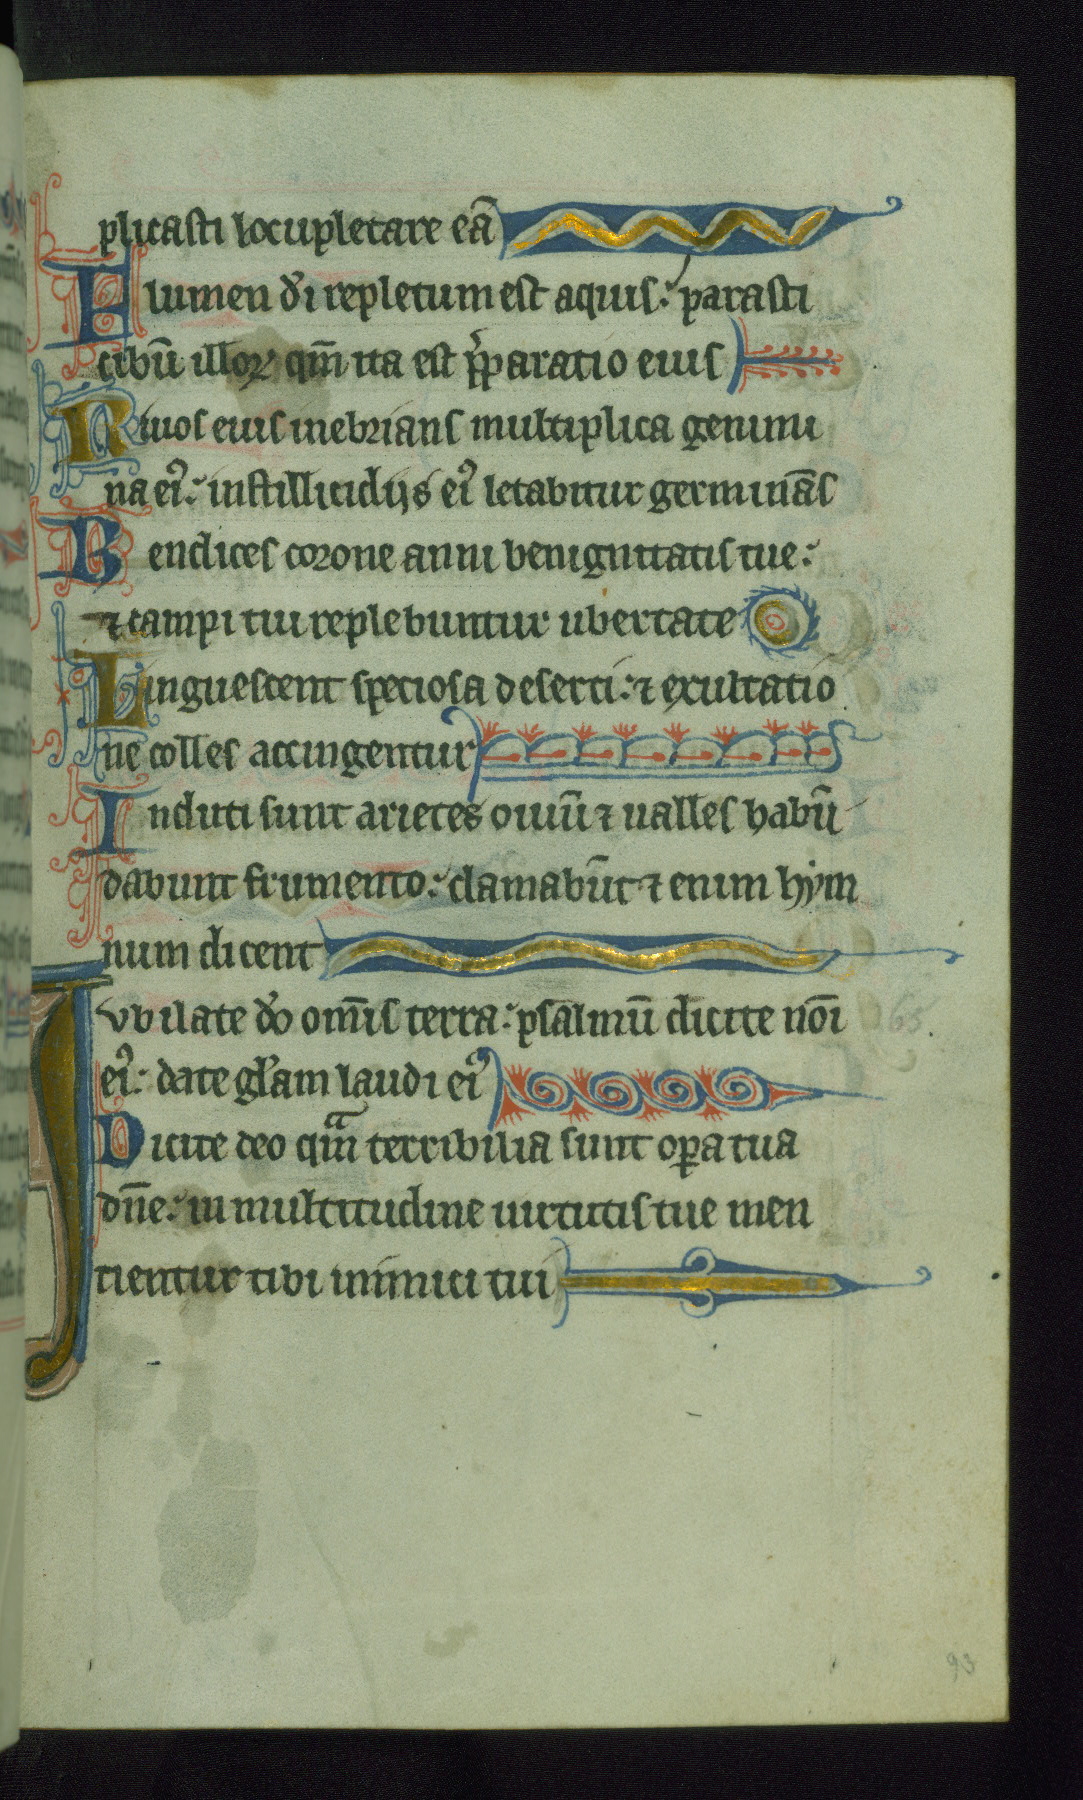 plicasti locupletare eā
Flumen di repletum est aquis: parasti
cibū illoꝝ qm̄ ita est p̄paratio eius
Riuos eius inebrians multiplica genimi
na eiꝰ: in stillicidijs eiꝰ letabitur germinās
Bendices corone anni benignitatis tue:
⁊ campi tui replebuntur ubertate
Pinguescent speciosa deserti: ⁊ exultatio
ne colles accingentur
Induti sunt arietes ouiū ⁊ ualles habū
dabunt frumento: clamabūt ⁊ enim hym
num dicent
Iubilate do om̄is terra: psalmū dicite nōi
eiꝰ: date gl̄am laudi eiꝰ
Dicite deo qm̄ terribilia sunt oꝑa tua
dn̄e: in multitudine uirtutis tue men
tientur tibi inimici tui
65
93